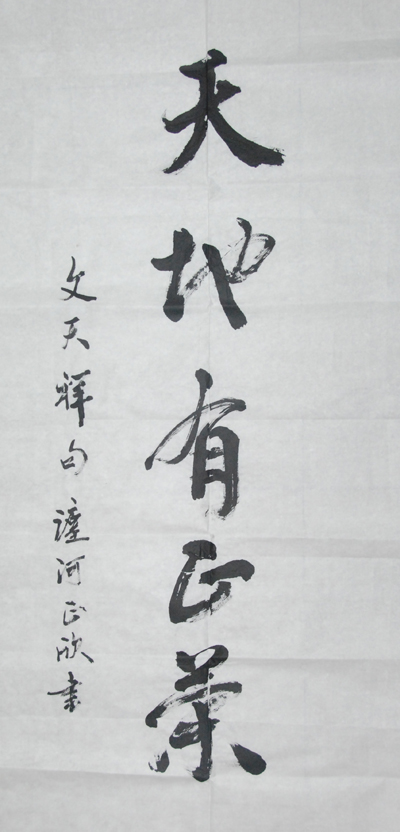 天地有正氣
文天祥句 瀍河正欣書